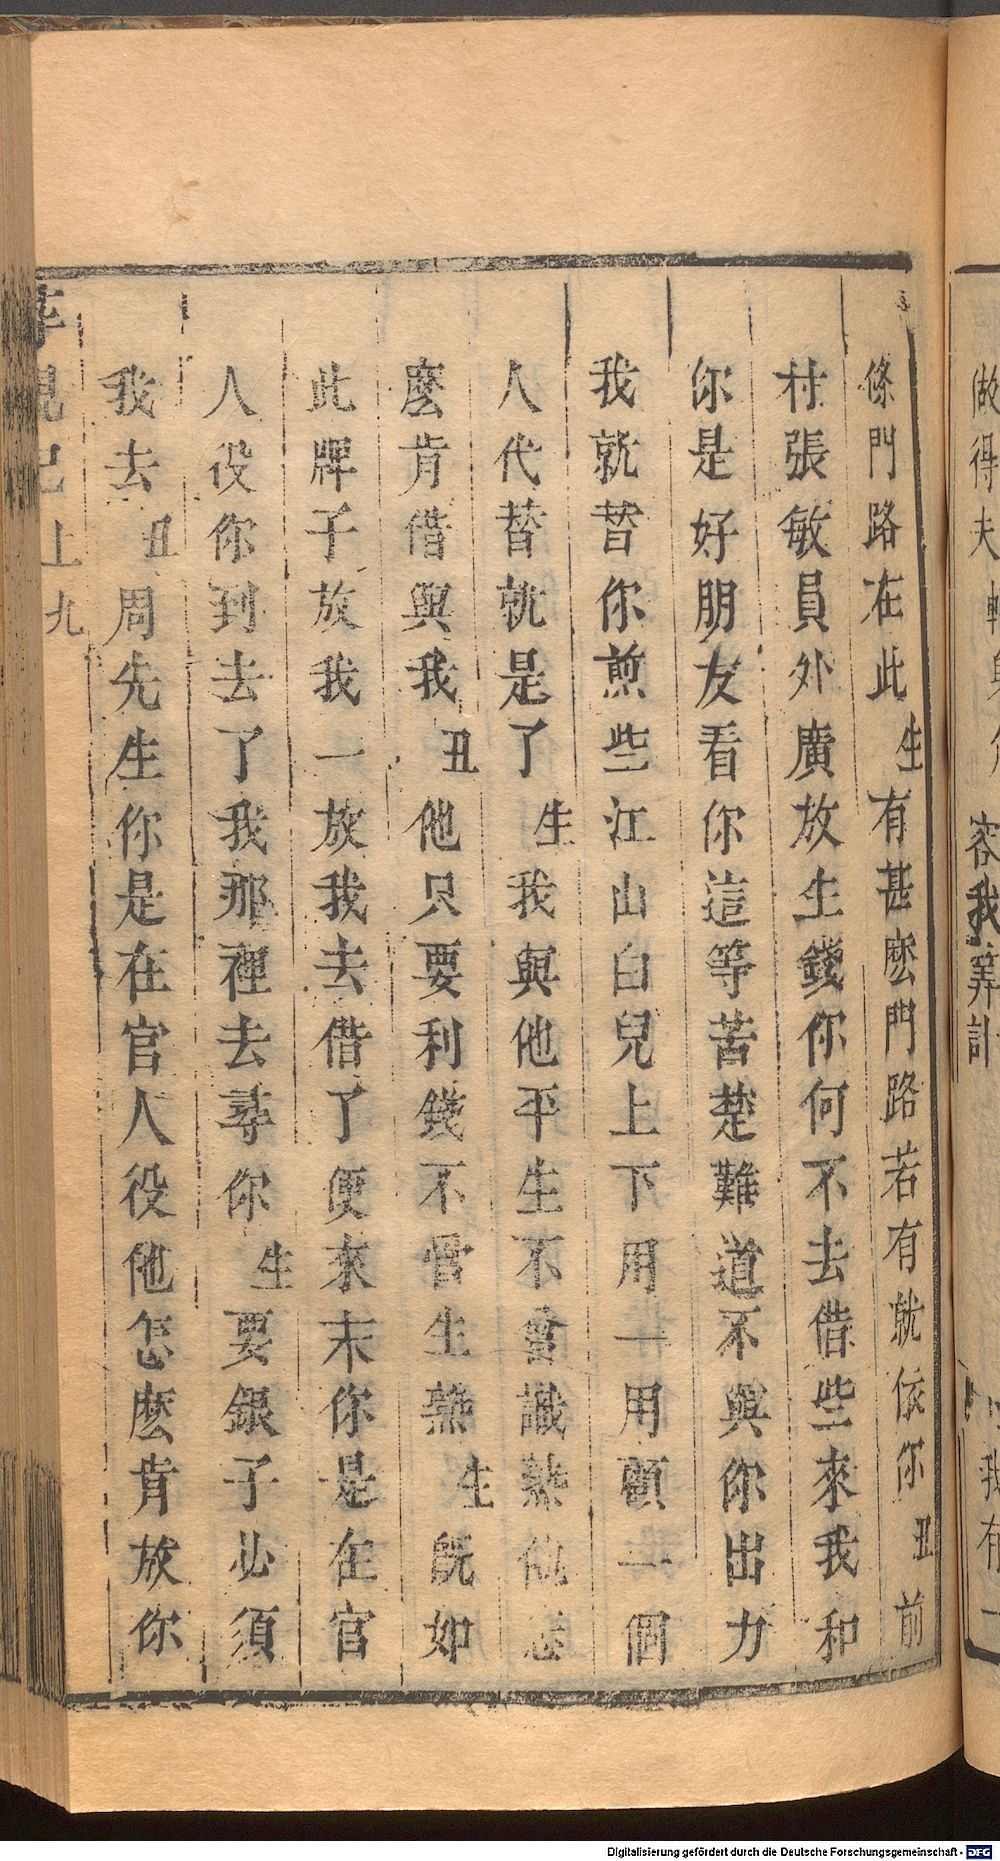 做得夫轎與
容我筭計
我有一
條門路在此生有甚麽門路若有就依你丑前
村張敏員外廣放生錢你何不去借些來我和
你是好朋友看你這等苦楚難道不與你出力
我就替你煎些江山白兒上下用一用頓一個
人代替就是了生我與他平生不曾識熟他怎
麽肯借與我丑他只要利錢不管生熟生旣如
此牌子放我一放我去借了便來末你是在官
人役你到去了我那裡去尋你生要銀子必須
我去丑周先生你是在官人役他怎麽肯放你
上九
Digitalisierung gefördert durch die Deutsche Forschungsgemeinschaft - DFG